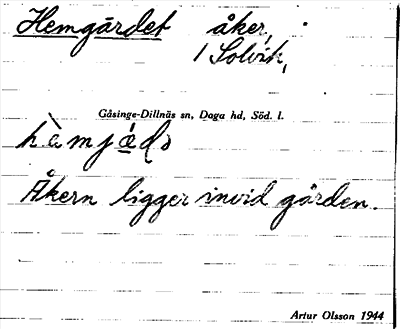 Hemgärdet åker,
1 Solvik,
Gåsinge-Dillnäs sn, Daga hd, Söd. l.
Åkern ligger invid gården.
Artur Olsson 1944